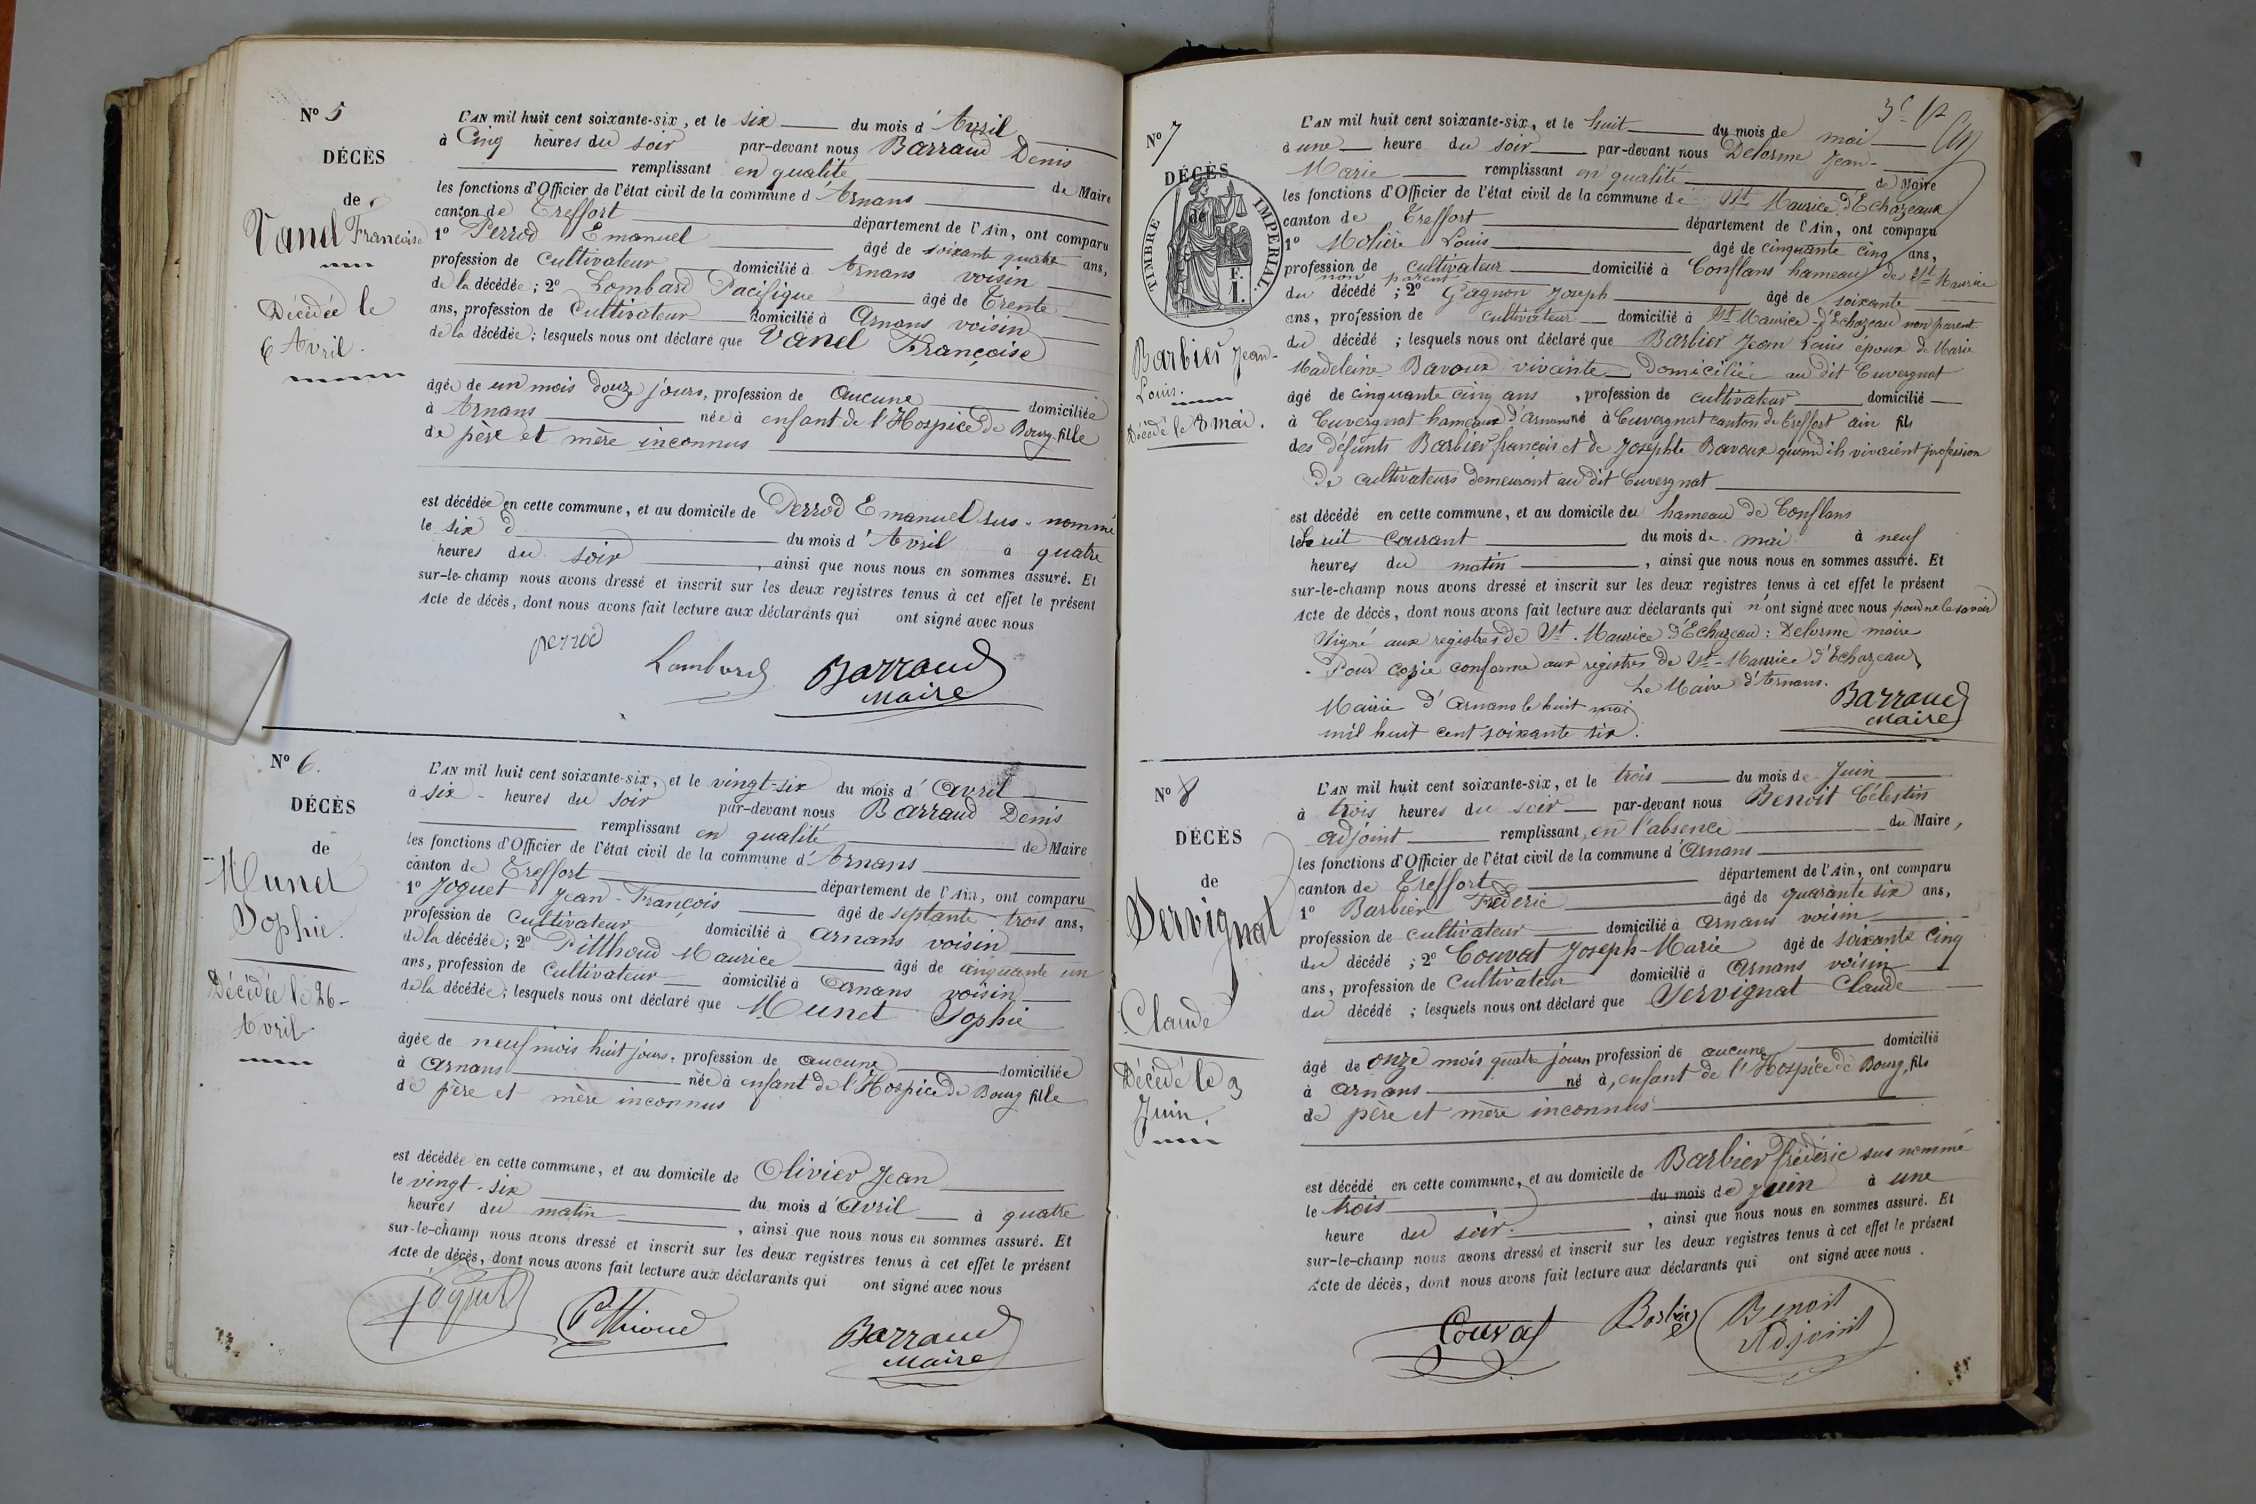 N° 5
DÉCÈS
de
Vanel Françoise
Décédée le
6 Avril.
L'AN mil huit cent soixante-six, et le six du mois d'Avril
à Cinq heures du soir par-devant nous Barraud Denis
remplissant en qualité de Maire
les fonctions d'Officier de l'état civil de la commune d'Arnans
canton de Treffort département de l'Ain, ont comparu
1° Perrod Emanuel âgé de soixante quatre ans,
profession de Cultivateur domicilié à Arnans voisin
de la décédée; 2° Lombard Pacifique âgé de Trente
ans, profession de Cultivateur domicilié à Arnans voisin
de la décédée; lesquels nous ont déclaré que Vanel Françoise
âgée de un mois douze jours, profession de Aucune domiciliée
à Arnans née à enfant de l'Hospice de Bourg fille
de père et mère inconnus
est décédée en cette commune, et au domicile de Perrod Emanuel sus-nommé
le six du mois d'Avril à quatre
heures du soir, ainsi que nous nous en sommes assuré. Et
sur-le-champ nous avons dressé et inscrit sur les deux registres tenus à cet effet le présent
Acte de décès, dont nous avons fait lecture aux déclarants qui ont signé avec nous
perrod
Lombard
Barraud
Maire
N° 6.
DÉCÈS
de
Munet
Sophie.
Décédée le 26
Avril
L'AN mil huit cent soixante-six, et le vingt-six du mois d'Avril
à six heures du soir par-devant nous Barraud Denis
remplissant en qualité de Maire
les fonctions d'Officier de l'état civil de la commune d'Arnans
canton de Treffort département de l'Ain, ont comparu
1° Joguet Jean-François âgé de septante trois ans,
profession de Cultivateur domicilié à Arnans voisin
de la décédée; 2° Pitthoud Maurice âgé de cinquante un
ans, profession de Cultivateur domicilié à Arnans voisin
de la décédée; lesquels nous ont déclaré que Munet Sophie
âgée de neuf mois huit jours, profession de aucune domiciliée
à Arnans née à enfant de l'Hospice de Bourg fille
de père et mère inconnus
est décédée en cette commune, et au domicile de Olivier Jean
le vingt-six du mois d'Avril à quatre
heures du matin, ainsi que nous nous en sommes assuré. Et
sur-le-champ nous avons dressé et inscrit sur les deux registres tenus à cet effet le présent
Acte de décès, dont nous avons fait lecture aux déclarants qui ont signé avec nous
joguet
Pitthioud
Barraud
Maire
N° 7
DÉCÈS
de
TIMBRE IMPERIAL.
F.
1.
Barbier Jean-
Louis.
Décédé le 8 mai.
L'AN mil huit cent soixante-six, et le huit du mois de mai
à une heure du soir par-devant nous Delorme Jean-
Marie remplissant en qualité de Maire
les fonctions d'Officier de l'état civil de la commune de St Maurice d'Echazeaux
canton de Treffort département de l'Ain, ont comparu
1° Molière Louis âgé de cinquante cinq ans,
profession de cultivateur domicilié à Conflans hameau de St Maurice
non parent
du décédé; 2° Gagnon Joseph âgé de soixante
ans, profession de cultivateur domicilié à St Maurice-d'Echazeau non parent
du décédé; lesquels nous ont déclaré que Barbier Jean Louis époux de Marie
Madeleine Bavoux vivante domiciliée au dit Cuvergnat
âgé de cinquante cinq ans, profession de cultivateur domicilié
à Cuvergnat hameau d'arnans né à Cuvergnat canton de Treffort ain fils
des défunts Barbier françois et de Josephte Bavoux quand ils vivaient profession
De cultivateurs demeurant au dit Cuvergnat
est décédé en cette commune, et au domicile du hameau de Conflans
le huit courant du mois de mai à neuf
heures du matin, ainsi que nous nous en sommes assuré. Et
sur-le-champ nous avons dressé et inscrit sur les deux registres tenus à cet effet le présent
Acte de décès, dont nous avons fait lecture aux déclarants qui n'ont signé avec nous pour ne le savoir
Signé aux registres de St. Maurice d'Echazeau: Delorme maire
Pour copie conforme aux registres de St-Maurice d'Echazeau,
Le Maire d'Arnans.
Mairie d'Arnans le huit mai
mil huit cent soixante six.
Barraud
Maire
N° 8
DÉCÈS
de
Servignat
Claude
Décédé le 3
Juin.
L'AN mil huit cent soixante-six, et le trois du mois de Juin
à trois heures du soir par-devant nous Benoit Célestin
adjoint remplissant en l'absence du Maire,
les fonctions d'Officier de l'état civil de la commune d'Arnans
canton de Treffort département de l'Ain, ont comparu
1° Barbier Fréderic âgé de quarante six ans,
profession de cultivateur domicilié à Arnans voisin
du décédé; 2° Couvat Joseph-Marie âgé de soixante cinq
ans, profession de Cultivateur domicilié à Arnans voisin
du décédé; lesquels nous ont déclaré que Servignat Claude
âgé de onze mois quatre jours profession de aucune domicilié
à Arnans né à, enfant de l'Hospice de Bourg, fils
de père et mère inconnus
est décédé en cette commune, et au domicile de Barbier frédéric sus nommé
le trois du mois de Juin à une
heure du soir, ainsi que nous nous en sommes assuré. Et
sur-le-champ nous avons dressé et inscrit sur les deux registres tenus à cet effet le présent
Acte de décès, dont nous avons fait lecture aux déclarants qui ont signé avec nous.
Couvat
Barbier
Benoit
Adjoint